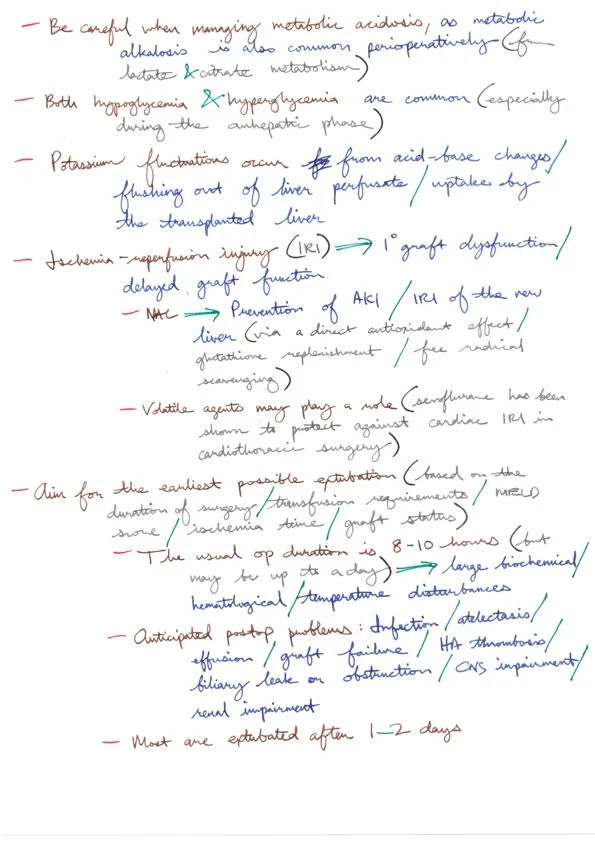 – Be careful when managing metabolic acidosis, as metabolic
alkalosis is also common perioperatively (from
lactate & citrate metabolism)
– Both hypoglycemia & hyperglycemia are common (especially
during the anhepatic phase)
– Potassium fluctuations occur from acid-base changes/
flushing out of liver perfusate / uptake by
the transplanted liver
– Ischemia-reperfusion injury (IRI) → 1° graft dysfunction/
delayed graft function
– NAC → Prevention of AKI / IRI of the new
liver (via a direct antioxidant effect/
glutathione replenishment / free radical
scavenging)
– Volatile agents may play a role (sevoflurane has been
shown to protect against cardiac IRI in
cardiothoracic surgery)
– Aim for the earliest possible extubation (based on the
duration of surgery/transfusion requirements/MELD
score / ischemia time / graft status)
– The usual op duration is 8-10 hours (but
may be up to a day) → large biochemical/
hematological/temperature disturbances
– Anticipated postop problems: Infection/atelectasis/
effusion / graft failure / HA thrombosis/
biliary leak or obstruction / CNS impairment/
renal impairment
– Most are extubated after 1–2 days